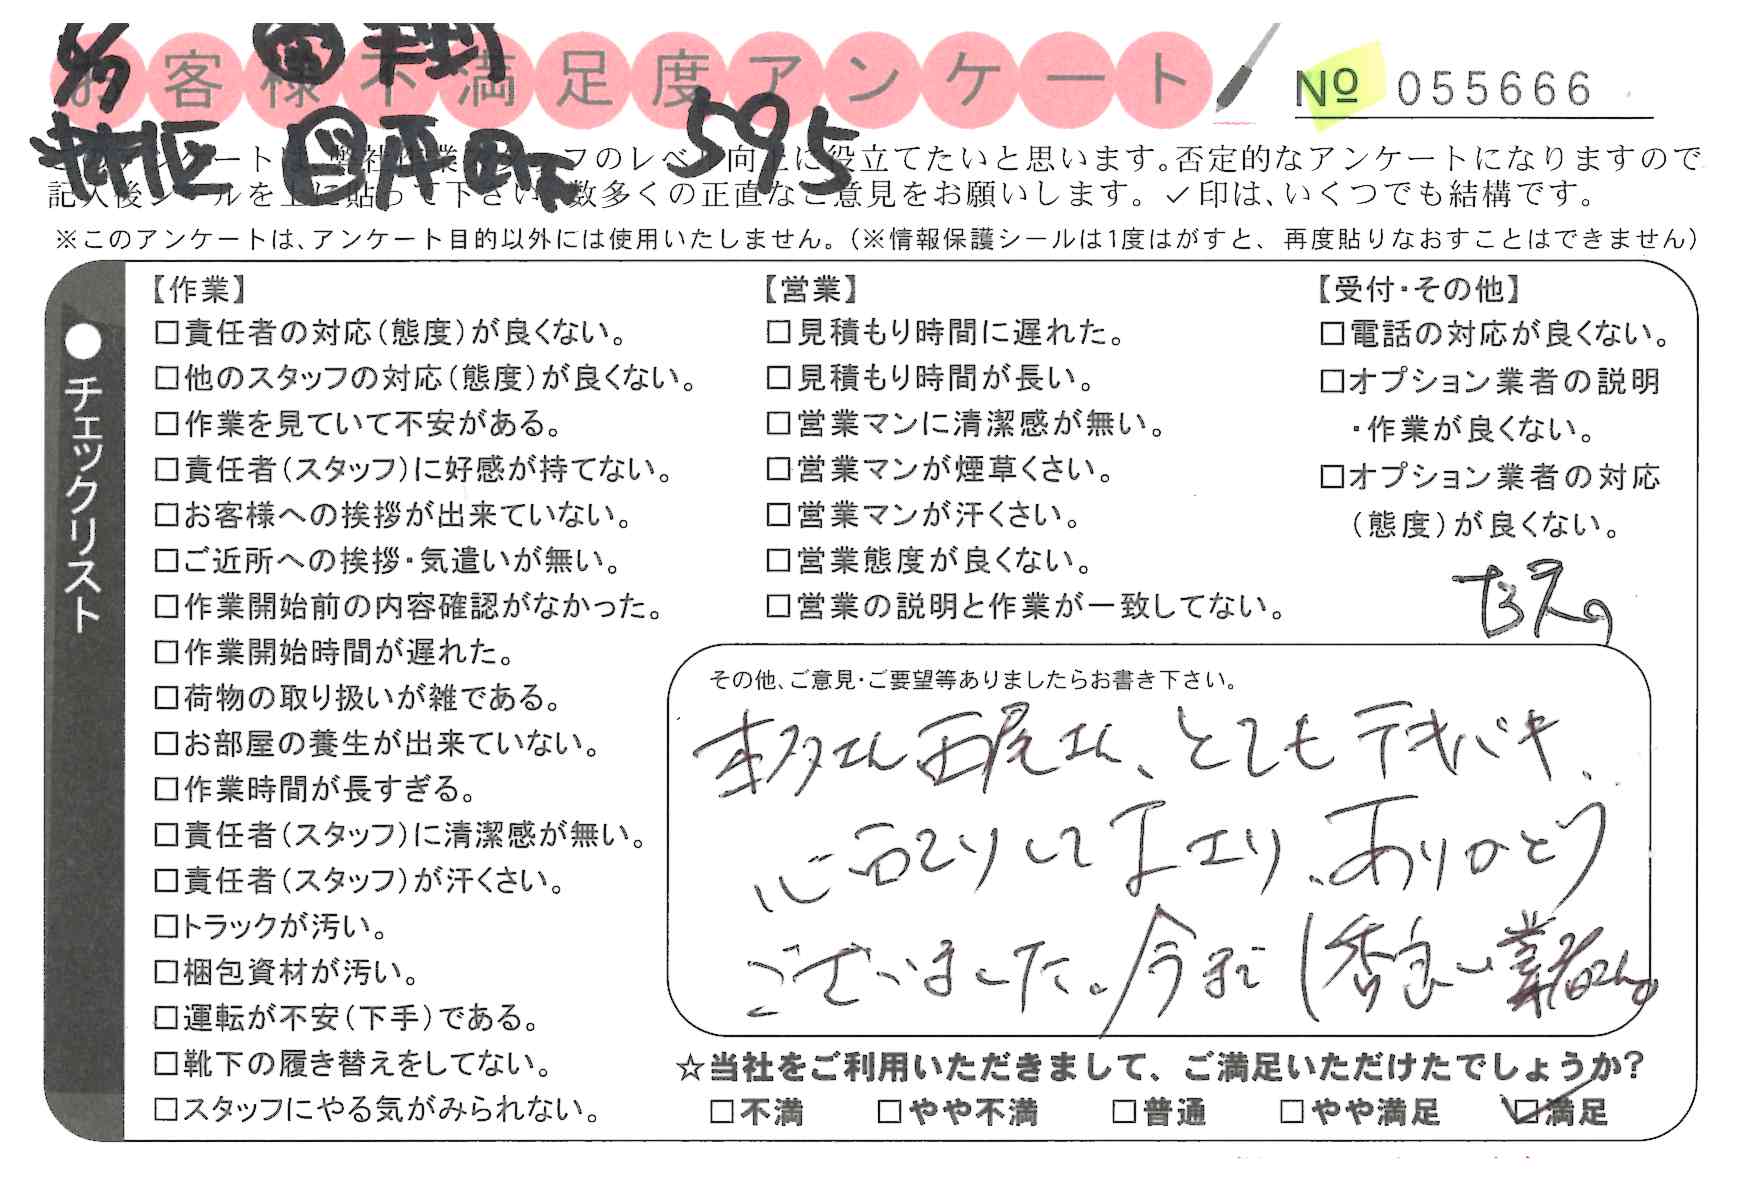 お客様不満足度アンケート
№ 055666
595
このアンケートは、弊社作業スタッフのレベル向上に役立てたいと思います。否定的なアンケートになりますので
記入後シールを上に貼って下さい。数多くの正直なご意見をお願いします。✓印は、いくつでも結構です。
※このアンケートは、アンケート目的以外には使用いたしません。(※情報保護シールは1度はがすと、再度貼りなおすことはできません)
●チェックリスト
【作業】
□責任者の対応(態度)が良くない。
□他のスタッフの対応(態度)が良くない。
□作業を見ていて不安がある。
□責任者(スタッフ)に好感が持てない。
□お客様への挨拶が出来ていない。
□ご近所への挨拶・気遣いが無い。
□作業開始前の内容確認がなかった。
□作業開始時間が遅れた。
□荷物の取り扱いが雑である。
□お部屋の養生が出来ていない。
□作業時間が長すぎる。
□責任者(スタッフ)に清潔感が無い。
□責任者(スタッフ)が汗くさい。
□トラックが汚い。
□梱包資材が汚い。
□運転が不安(下手)である。
□靴下の履き替えをしてない。
□スタッフにやる気がみられない。
【営業】
□見積もり時間に遅れた。
□見積もり時間が長い。
□営業マンに清潔感が無い。
□営業マンが煙草くさい。
□営業マンが汗くさい。
□営業態度が良くない。
□営業の説明と作業が一致してない。
【受付・その他】
□電話の対応が良くない。
□オプション業者の説明
・作業が良くない。
□オプション業者の対応
(態度)が良くない。
その他、ご意見・ご要望等ありましたらお書き下さい。
本多さん西尾さん、とてもテキパキ、
心配りして下さり、ありがとう
ございました。今まで1番良い業者さん
☆当社をご利用いただきまして、ご満足いただけたでしょうか?
□不満 □やや不満 □普通 □やや満足 ☑満足